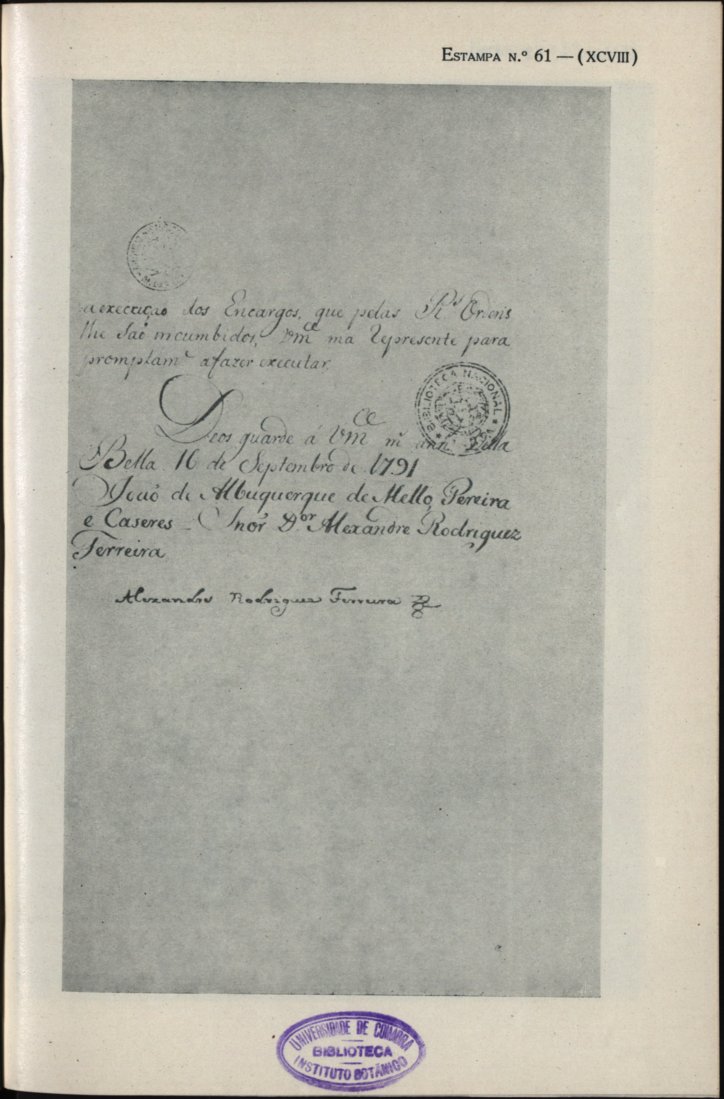 ESTAMPA N.º 61 — (XCVIII)
a execução dos Encargos, que pelas R.s Ordens
lhe saõ incumbidos, Vm.ce ma represente para
promptam.e a fazer executar.
Deos guarde á Vm.ce m.s ann.s Villa
Bella 16 de Septembro de 1791
Joaõ de Albuquerque de Mello, Pereira
e Caseres _ Snõr D.or Alexandre Rodriguez
Ferreira
Alexandre Rodrigues Ferreira
BIBLIOTECA NACIONAL
UNIVERSIDADE DE COIMBRA
BIBLIOTECA
INSTITUTO BOTÂNICO